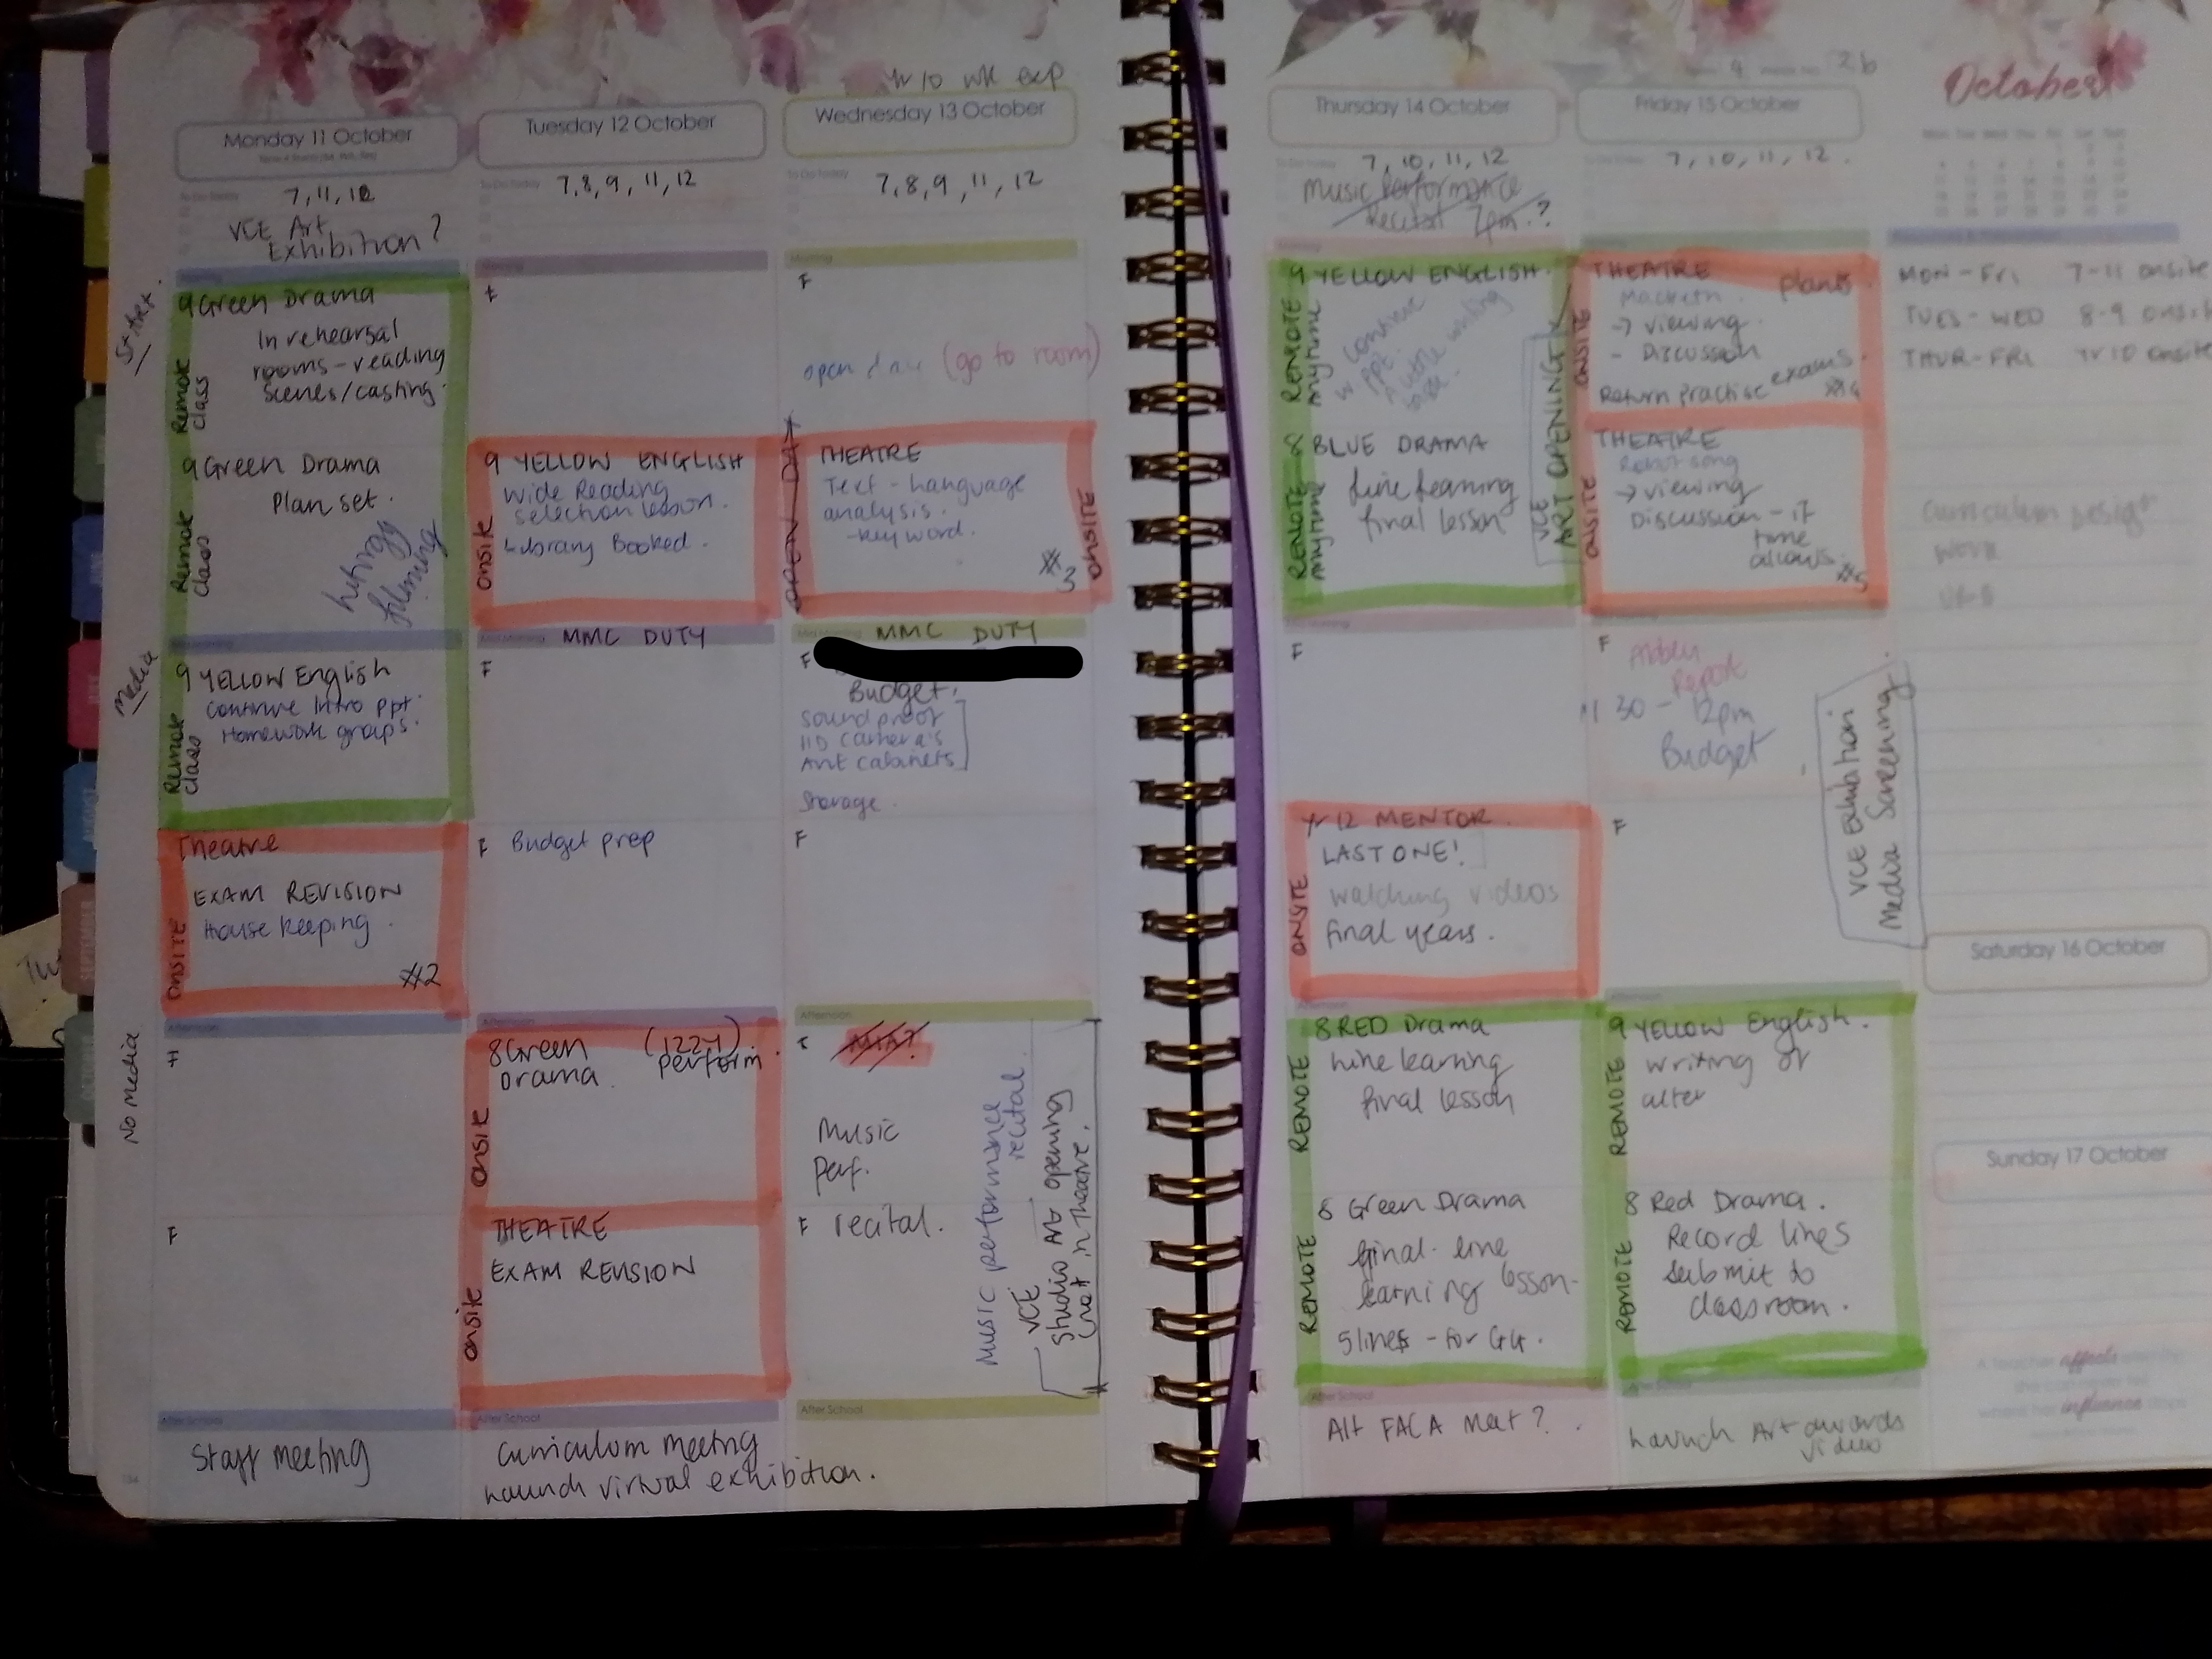 Yr 10 wk exp
Monday 11 October
7, 11, 12
VCE Art
Exhibition?
9 Green Drama
In rehearsal
rooms - reading
Scenes/casting.
Remote
class
9 Green Drama
Plan set.
filming
Remote
class
Media
9 YELLOW English
Continue Intro ppt.
Homework groups.
Remote
class
Theatre
EXAM REVISION
House keeping.
#2
ONSITE
No Media
Afternoon
F
F
After School
Staff meeting
Tuesday 12 October
To Do Today
7, 8, 9, 11, 12
F
9 YELLOW ENGLISH
Wide Reading
selection lesson.
Library Booked.
Onsite
MMC DUTY
F
F Budget prep
Afternoon
8 Green (1224)
Drama. perform.
onsite
THEATRE
EXAM REVISION
onsite
After School
Curriculum meeting
Launch virtual exhibition.
Wednesday 13 October
To Do Today
7, 8, 9, 11, 12
Morning
F
open day (go to room)
OPEN DAY
THEATRE
Text - Language
analysis.
- key word.
#3
ONSITE
MMC DUTY
F
Budget.
Soundproof
HD camera's
Art cabinets
Storage.
F
Afternoon
Music
Perf.
F recital.
Music performance
recital.
VCE
Studio Art opening
(not in Theatre.
After School
Thursday 14 October
To Do Today
7, 10, 11, 12
Music Performance
Recital 7pm.?
9 YELLOW ENGLISH.
Continue
ppt.
a little writing
REMOTE
Anytime
8 BLUE DRAMA
Line learning
final lesson
REMOTE
Anytime
VCE
ART OPENING
F
Yr 12 MENTOR
LAST ONE!
watching videos
final years.
ONSITE
8 RED Drama
Line learning
final lesson
REMOTE
8 Green Drama
final line
learning lesson-
5 lines - for G4.
REMOTE
After School
Alt FACA Meet?
4 2b
Friday 15 October
7, 10, 11, 12.
THEATRE
Macbeth.
→ viewing.
- Discussion
plants.
Return practise exams.
#4
ONSITE
THEATRE
Robot song
→ viewing
Discussion - if
time
allows.
#5
ONSITE
F
Report
11 30 - 12pm
Budget
VCE Exhibition
Media Screening
F
9 YELLOW English.
writing of
alter
REMOTE
8 Red Drama.
Record lines
submit to
classroom.
REMOTE
After School
Launch Art awards
video
October
MON - Fri 7-11 onsite
TUES - WED 8-9 onsit
THUR - FRI Yr 10 onsite
Curriculum Design
work
Saturday 16 October
Sunday 17 October
A teacher affects eternity;
influence stops
JUNE
AUGUST
SEPTEMBER
OCTOBER